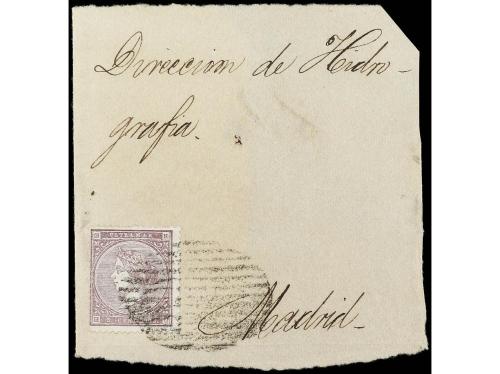 Direccion de Hidro-
grafia.
ULTRAMAR
Madrid-